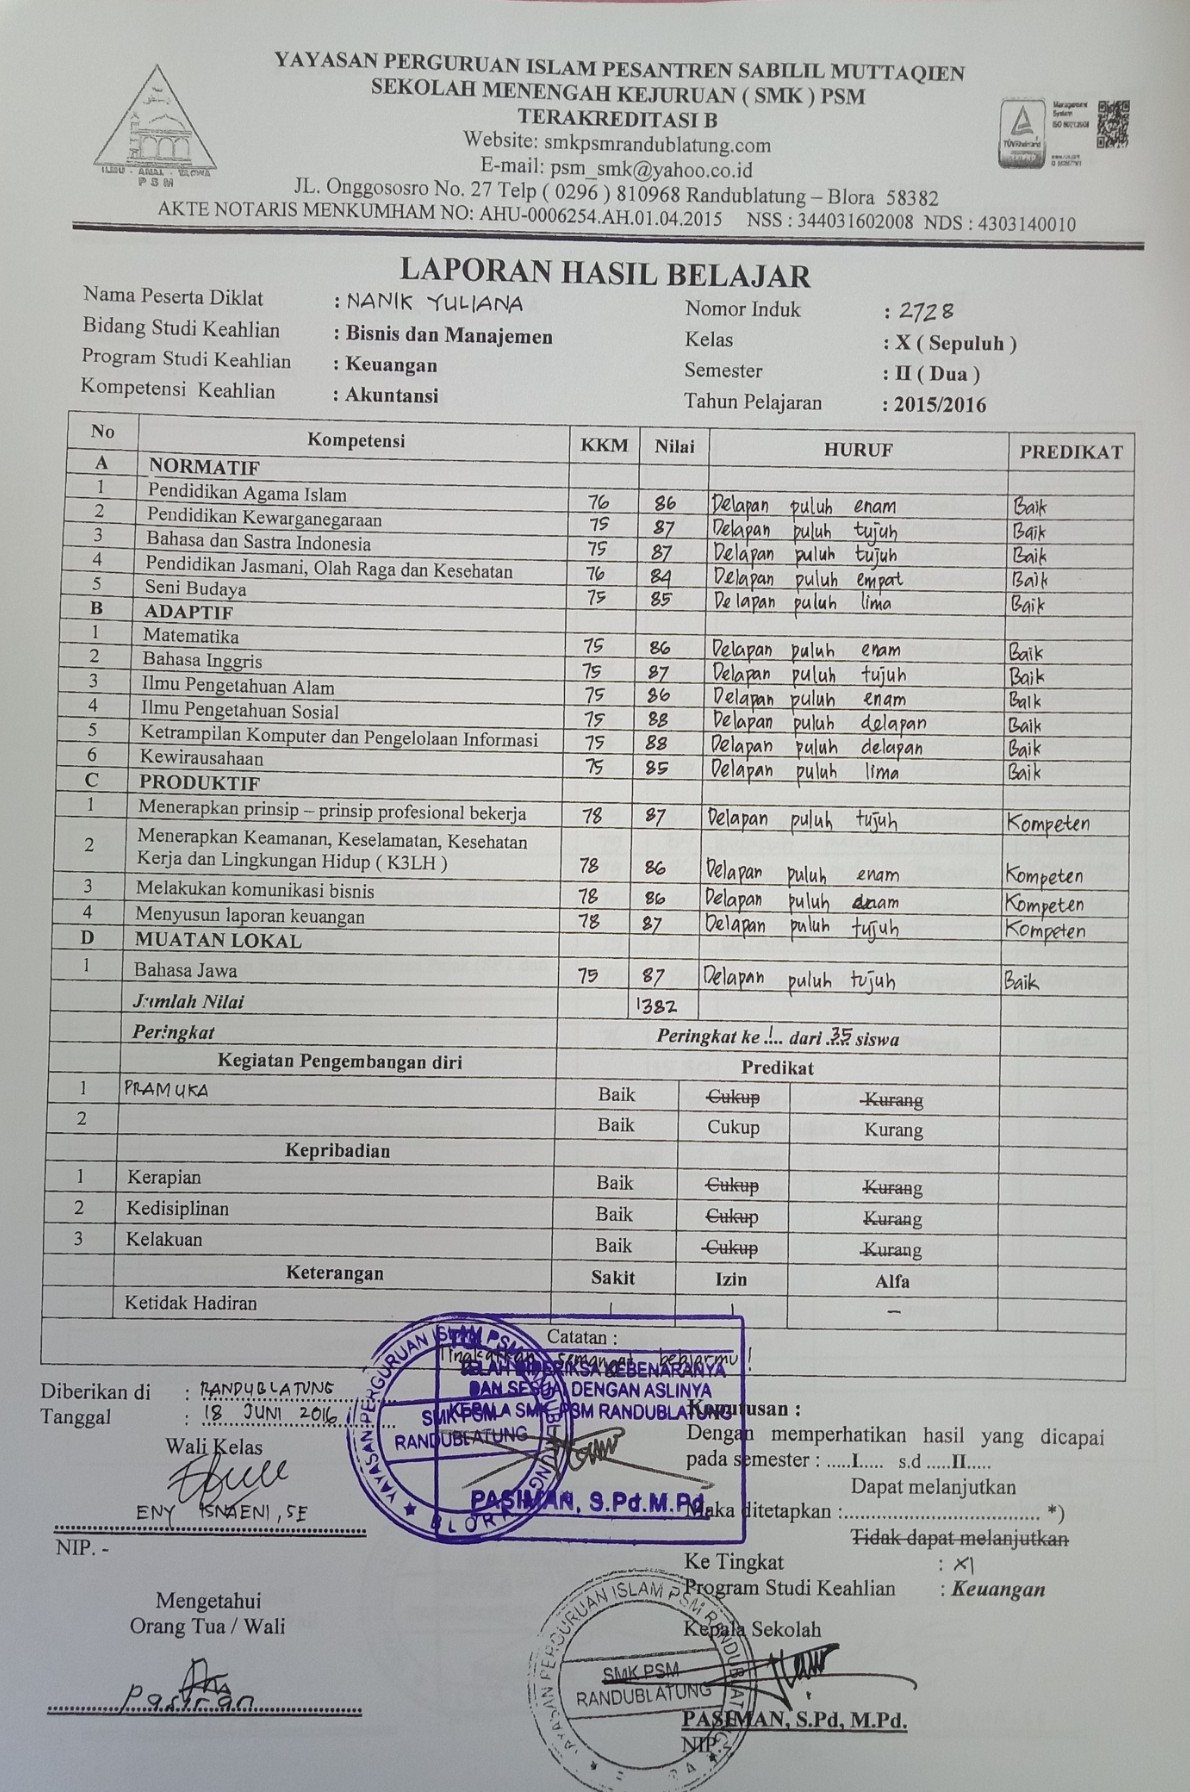 YAYASAN PERGURUAN ISLAM PESANTREN SABILIL MUTTAQIEN
SEKOLAH MENENGAH KEJURUAN ( SMK ) PSM
TERAKREDITASI B
Website: smkpsmrandublatung.com
E-mail: psm_smk@yahoo.co.id
JL. Onggososro No. 27 Telp ( 0296 ) 810968 Randublatung – Blora 58382
AKTE NOTARIS MENKUMHAM NO: AHU-0006254.AH.01.04.2015 NSS : 344031602008 NDS : 4303140010
ILMU - AMAL - TAQWA
PSM
Management
System
TÜVRheinland
LAPORAN HASIL BELAJAR
Nama Peserta Diklat : NANIK YULIANA Nomor Induk : 2728
Bidang Studi Keahlian : Bisnis dan Manajemen Kelas : X ( Sepuluh )
Program Studi Keahlian : Keuangan Semester : II ( Dua )
Kompetensi Keahlian : Akuntansi Tahun Pelajaran : 2015/2016
No Kompetensi KKM Nilai HURUF PREDIKAT
A NORMATIF
1 Pendidikan Agama Islam 76 86 Delapan puluh enam Baik
2 Pendidikan Kewarganegaraan 75 87 Delapan puluh tujuh Baik
3 Bahasa dan Sastra Indonesia 75 87 Delapan puluh tujuh Baik
4 Pendidikan Jasmani, Olah Raga dan Kesehatan 76 84 Delapan puluh empat Baik
5 Seni Budaya 75 85 Delapan puluh lima Baik
B ADAPTIF
1 Matematika 75 86 Delapan puluh enam Baik
2 Bahasa Inggris 75 87 Delapan puluh tujuh Baik
3 Ilmu Pengetahuan Alam 75 86 Delapan puluh enam Baik
4 Ilmu Pengetahuan Sosial 75 88 Delapan puluh delapan Baik
5 Ketrampilan Komputer dan Pengelolaan Informasi 75 88 Delapan puluh delapan Baik
6 Kewirausahaan 75 85 Delapan puluh lima Baik
C PRODUKTIF
1 Menerapkan prinsip – prinsip profesional bekerja 78 87 Delapan puluh tujuh Kompeten
2 Menerapkan Keamanan, Keselamatan, Kesehatan
Kerja dan Lingkungan Hidup ( K3LH ) 78 86 Delapan puluh enam Kompeten
3 Melakukan komunikasi bisnis 78 86 Delapan puluh enam Kompeten
4 Menyusun laporan keuangan 78 87 Delapan puluh tujuh Kompeten
D MUATAN LOKAL
1 Bahasa Jawa 75 87 Delapan puluh tujuh Baik
Jumlah Nilai 1382
Peringkat Peringkat ke .1.. dari .35. siswa
Kegiatan Pengembangan diri Predikat
1 PRAMUKA Baik Cukup Kurang
2 Baik Cukup Kurang
Kepribadian
1 Kerapian Baik Cukup Kurang
2 Kedisiplinan Baik Cukup Kurang
3 Kelakuan Baik Cukup Kurang
Keterangan Sakit Izin Alfa
Ketidak Hadiran 1 1 –
Catatan :
Tingkatkan semangat belajarmu !
TELAH DIPERIKSA KEBENARANYA
DAN SESUAI DENGAN ASLINYA
KEPALA SMK PSM RANDUBLATUNG
PASIMAN, S.Pd.M.Pd.
YAYASAN PERGURUAN ISLAM PSM RANDUBLATUNG
SMK PSM
RANDUBLATUNG
BLORA
Diberikan di : RANDUBLATUNG
Tanggal : 18 JUNI 2016
Wali Kelas
ENY ISNAENI, SE
NIP. -
Keputusan :
Dengan memperhatikan hasil yang dicapai
pada semester : .....I..... s.d .....II.....
Dapat melanjutkan
Maka ditetapkan :.................................... *)
Tidak dapat melanjutkan
Ke Tingkat : XI
Program Studi Keahlian : Keuangan
Mengetahui
Orang Tua / Wali
Pasiran
Kepala Sekolah
YAYASAN PERGURUAN ISLAM PSM RANDUBLATUNG
SMK PSM
RANDUBLATUNG
PASIMAN, S.Pd, M.Pd.
NIP